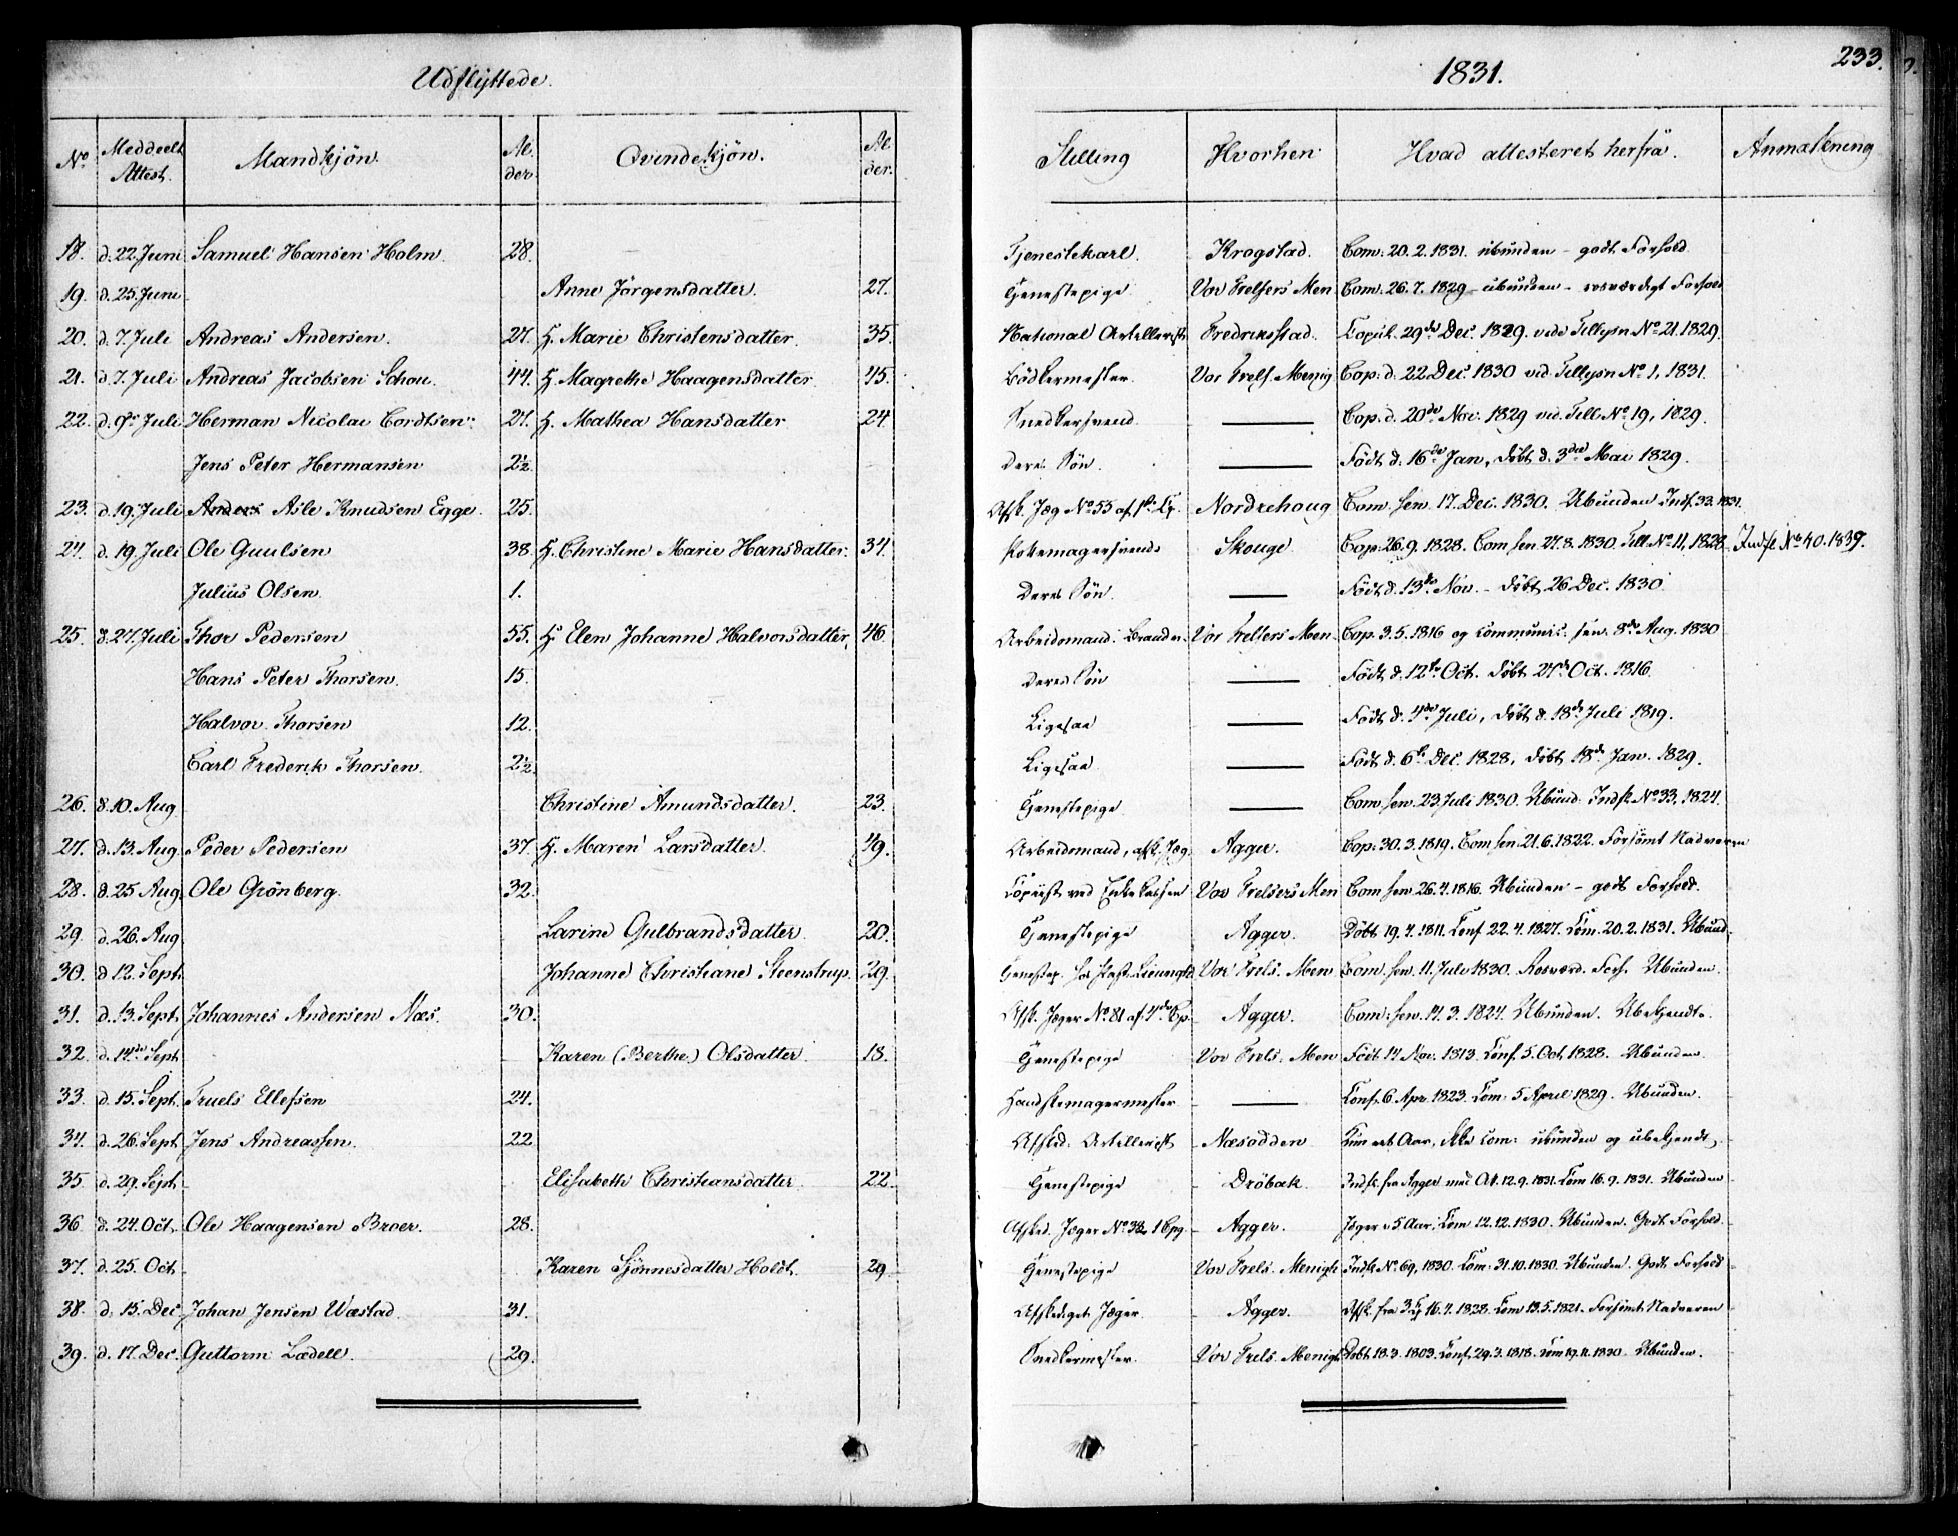 Udflyttede.
1831.
233.
No. Meddeelt Attest. Mandkjön. Alder Qvindekjön. Alder. Stilling Hvorhen Hvad attesteret herfra. Anmærkning
18. d. 22 Juni Samuel Hansen Holm. 28. Tjenestekarl. Krogstad. Com. 20.2.1831. ubunden - godt Forhold
19. d. 25 Juni Anne Jörgensdatter. 27. Tjenestepige Vor Frelsers Men Com. 26.7.1829 - ubunden - rosværdigt Forhold
20. d. 7 Juli Andreas Andersen. 27. H. Marie Christensdatter. 35. National Artellerist Fredriksstad. Copul. 29de Dec. 1829. vide Tillysn No. 21. 1829.
21. d. 7. Juli Andreas Jacobsen Schou. 44. H. Magrethe Haagensdatter. 45. Bödkermester. Vor Frels. Menig Cop. d. 22 Dec. 1830 vid. Tillysn No. 1, 1831.
22. d. 9de Juli Herman Nicolai Cordtsen. 27. H. Mathea Hansdatter 24 Snedkersvend. — Cop. d. 20de Nov. 1829 vid. Till. No. 19, 1829.
Jens Peter Hermansen 2½. Deres Sön. — Födt d. 16de Jan, döbt d. 3die Mai 1829.
23. d. 19. Juli Anders Asle Knudsen Egge. 25. Afsk. Jæg No. 55 af 1ste Cp. Nordrehoug Com. sen. 17. Dec. 1830. Ubunden Indf. 33. 1831.
24. d. 19 Juli Ole Guulsen 38. H. Christine Marie Hansdatter. 34. Skouge Cop. 26.9.1828. Com sen 27.8.1830. Till. No. 11, 1828. Indfl. No. 40. 1839.
Julius Olsen. 1. Deres Sön. — Födt d. 13de Nov. - döbt 26 Dec. 1830
25. d. 27. Juli Thor Pedersen 55. H. Elen Johanne Halvorsdatter. 46. Arbeidsmand. Vor Frelsers Men. Cop. 3.5.1816 og communic. sen. 8de Aug. 1830
Hans Peter Thorsen. 15. Deres Sön — Födt d. 12te Oct. döbt 27de Oct. 1816.
Halvor Thorsen 12. Ligesaa — Födt d. 4de Juli, döbt d. 18de Juli 1819.
Carl Frederik Thorsen. 2½. Ligesaa — Födt d. 6te Dec. 1828, döbt 18de Jan. 1829.
26. d. 10. Aug Christine Amundsdatter. 23. Tjenestepige — Com. sen. 23 Juli 1830. Ubund. Indfl. No. 33, 1824.
27. d. 13. Aug Peder Pedersen 37. H. Maren Larsdatter. 49. Arbeidsmand, afsk. Jæg Agger. Cop. 30.3.1819. Com sen. 21.6.1822. Forsömt Nadveren
28. d. 25 Aug. Ole Grönberg. 32. Copiist ved Enkekassen Vor Frelsers Men Com sen 26.4.1816. Ubunden - godt Forhold.
29. d. 26. Aug Larine Gulbrandsdatter. 20. Tjenestepige Agger. Döbt 19.4.1811. Conf 22.4.1827. Com. 20.2.1831. Ubund.
30. d 12. Sept. Johanne Christiane Steenstrup. 29. Vor Frels. Men Com sen. 11. July 1830. Rosværd. Forh. Ubunden.
31. d. 13. Sept. Johannes Andersen Næs. 30. Afsk. Jæger No. 81 af 4de Cp. Agger. Com. sen. 14.3.1824. Ubunden. Ubekjendt.
32. d. 14de Sept Karen (Berthe) Olsdatter. 18. Tjenestepige Vor Frels. Men Födt 14 Nov. 1813. Conf. 5. Oct. 1828. Ubunden.
33. d. 15. Sept. Truels Ellefsen 24. Handskemagermester — Conf. 6. Apr. 1823. Com. 5 April 1829. Ubunden.
34. d. 26. Sept Jens Andreassen. 22 Afsked. Artellerist Næsodden Aar, ikke com. ubunden og ubekjendt.
35 d. 29. Sept Elisabeth Christiansdatter. 22. Tjenestepige Dröbak. Indfl. fra Agger med At. 12.9.1831. Com 16.9.1831. Ubunden
36 d. 24. Oct. Ole Haagensen Broer. 28. Afsked. Jæger No. 32 1 Cpg. Agger. Jæger i 5 Aar; Com 12.12.1830. Ubunden. Godt Forhold
37. d. 25. Oct Karen Sjönnesdatter Holdt. 29 Tjenestepige Vor Frels. Menigh Indfl. No. 69, 1830. Com. 31.10.1830. Ubunden. Godt Forhold
38. d. 15. Dec Johan Jensen Wæstad. 31. Afskediget Jæger. Agger. Afsk. fra 3. Cp 16.4.1828. Com 13.5.1821. Forsömt Nadveren
39. d. 17. Dec. Guttorm Lædell. 29. Snedkermester. Vor Frels. Menigh Döbt 18.3.1803. Conf. 29.3.1818. Com 19.11.1830. Ubunden.